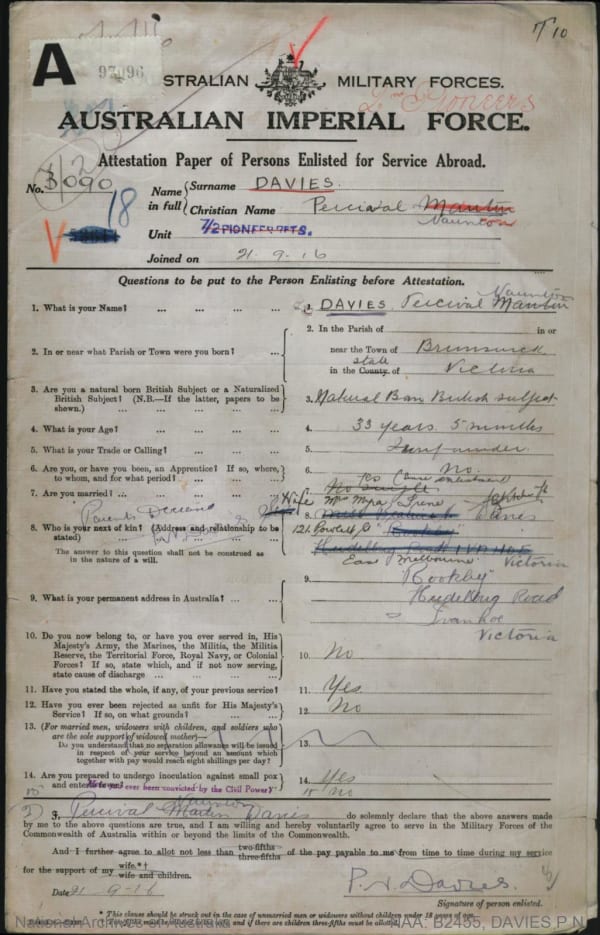 A 97096
7/10
STRALIAN MILITARY FORCES.
2nd Pioneers
AUSTRALIAN IMPERIAL FORCE.
Attestation Paper of Persons Enlisted for Service Abroad.
No. 3090
18
Name in full { Surname DAVIES.
Christian Name Percival Martin
Naunton
Unit 7/2 PIONEERS.
Joined on 21.9.16
Questions to be put to the Person Enlisting before Attestation.
1. What is your Name? ... ... ... 1. DAVIES Percival Martin
Naunton
2. In or near what Parish or Town were you born? ... 2. In the Parish of in or
near the Town of Brunswick
state
in the County of Victoria
3. Are you a natural born British Subject or a Naturalized British Subject? (N.B.—If the latter, papers to be shown.) ... 3. Natural Born British subject
4. What is your Age? ... ... ... 4. 33 years 5 months
5. What is your Trade or Calling? ... ... 5.
6. Are you, or have you been, an Apprentice? If so, where, to whom, and for what period? ... ... 6. No.
7. Are you married? ... ... ... 7. No single
Yes (since enlistment)
8. Who is your next of kin? (Address and relationship to be stated) ... ... ... 8. Wife Mrs Myra Irene Davies
Parents Deceased
121 Powlett St "Rookby"
Heidelberg Road IVANHOE
East Melbourne Victoria
The answer to this question shall not be construed as in the nature of a will.
9. What is your permanent address in Australia? ... ... 9. "Rookby"
Heidelberg Road
Ivanhoe
Victoria
10. Do you now belong to, or have you ever served in, His Majesty's Army, the Marines, the Militia, the Militia Reserve, the Territorial Force, Royal Navy, or Colonial Forces? If so, state which, and if not now serving, state cause of discharge ... ... ... 10. No
11. Have you stated the whole, if any, of your previous service? 11. Yes
12. Have you ever been rejected as unfit for His Majesty's Service? If so, on what grounds? ... ... 12. No
13. (For married men, widowers with children, and soldiers who are the sole support of widowed mother)—
Do you understand that no separation allowance will be issued in respect of your service beyond an amount which together with pay would reach eight shillings per day? 13.
14. Are you prepared to undergo inoculation against small pox and enteric fever? 14. Yes
15 Have you ever been convicted by the Civil Power? 15 no
I, Percival Martin Davies do solemnly declare that the above answers made
Naunton
by me to the above questions are true, and I am willing and hereby voluntarily agree to serve in the Military Forces of the
Commonwealth of Australia within or beyond the limits of the Commonwealth.
And I further agree to allot not less than two-fifths three-fifths of the pay payable to me from time to time during my service
for the support of my wife.*† wife and children.
Date 21-9-16
P. N. Davies.
Signature of person enlisted.
* This clause should be struck out in the case of unmarried men or widowers without children under 18 years of age.
National Archives of Australia
NAA: B2455, DAVIES P N